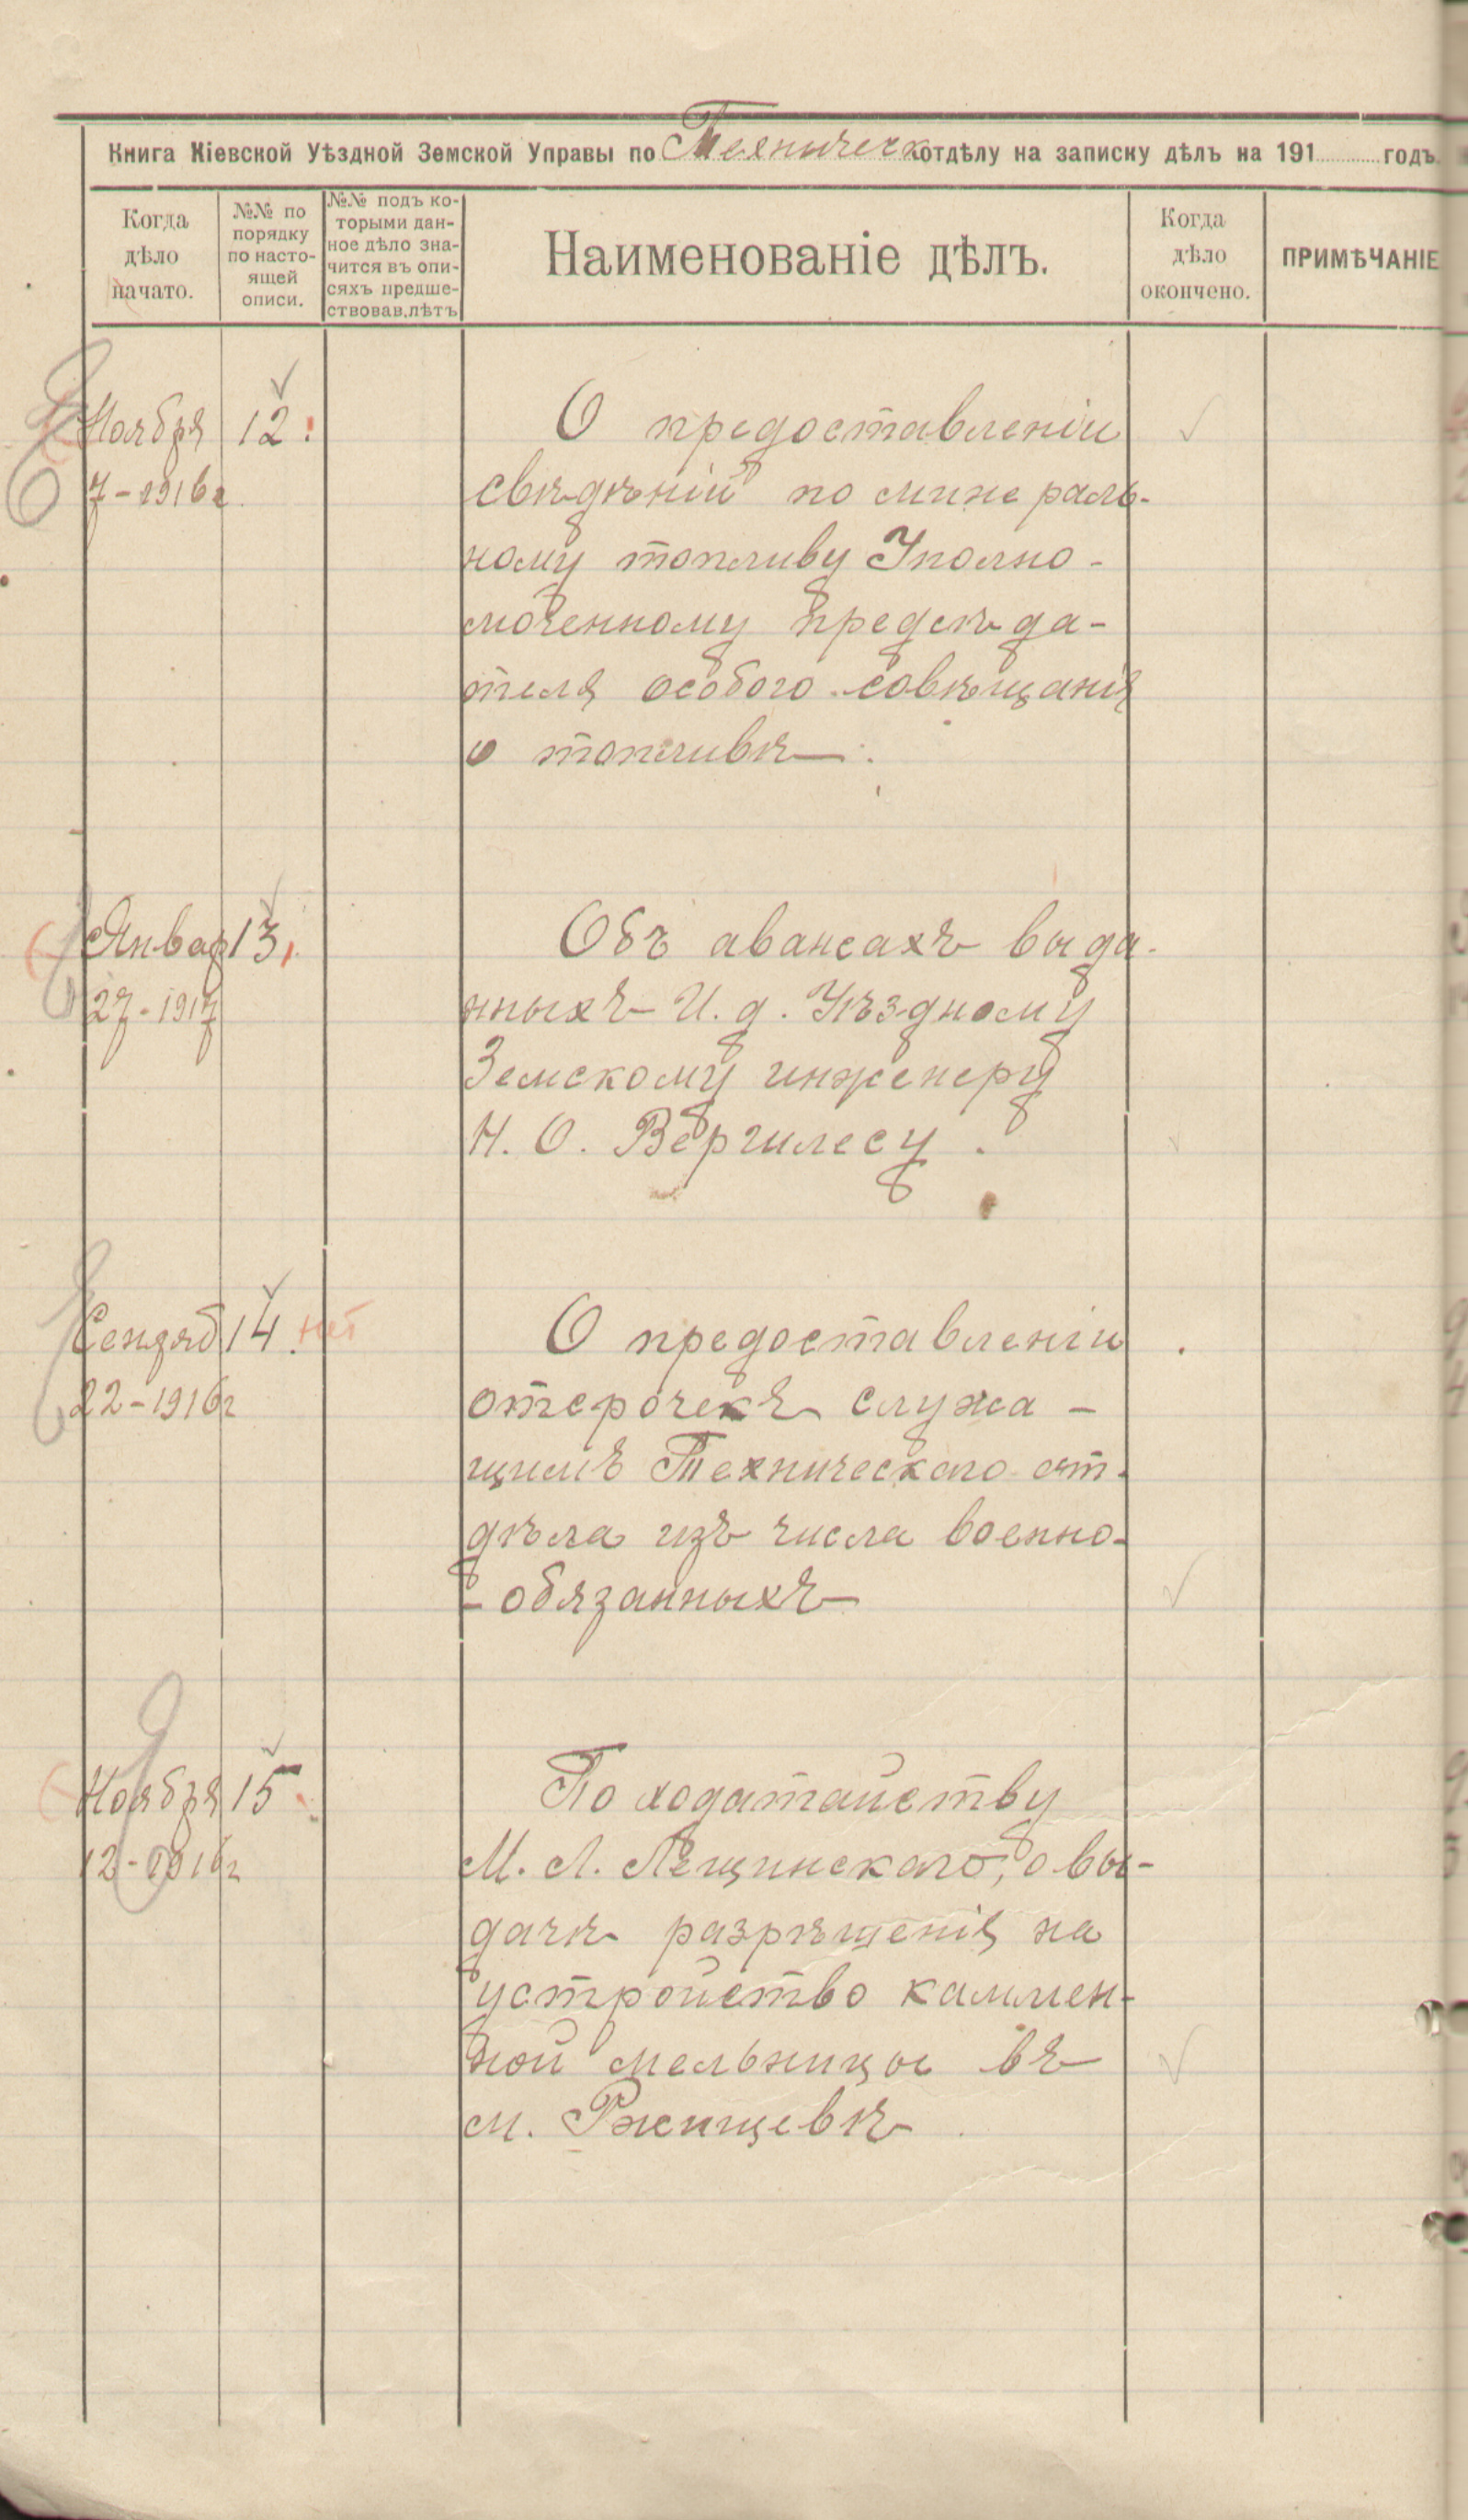 Книга Кіевской Уѣздной Земской Управы по Техническ. отдѣлу на записку дѣлъ на 191 годъ.
Когда
дѣло
начато.
№№ по
порядку
по насто-
ящей
описи.
№№ подъ ко-
торыми дан-
ное дѣло зна-
чится въ опи-
сяхъ предше-
ствовав.лѣтъ
Наименованіе дѣлъ.
Когда
дѣло
окончено.
ПРИМѢЧАНІЕ
Ноября 12. О предоставленіи
7-1916г. свѣдѣній по минераль-
ному топливу Уполно-
моченному предсѣда-
теля особого совѣщанія
о топливѣ.
Январ 13. Объ авансахъ выда-
27-1917 нныхъ И. д. Уѣздному
Земскому инженеру
Н. О. Вергилесу.
Сентяб 14. нет О предоставленіи
22-1916г отсрочекъ служа-
щимъ Техническаго от-
дѣла изъ числа военно-
-обязанныхъ
Ноября 15. По ходатайству
12-1916г М. Л. Лещинскаго, о вы-
дачѣ разрѣшенія на
устройство каммен-
ной мельницы въ
м. Ржищевѣ